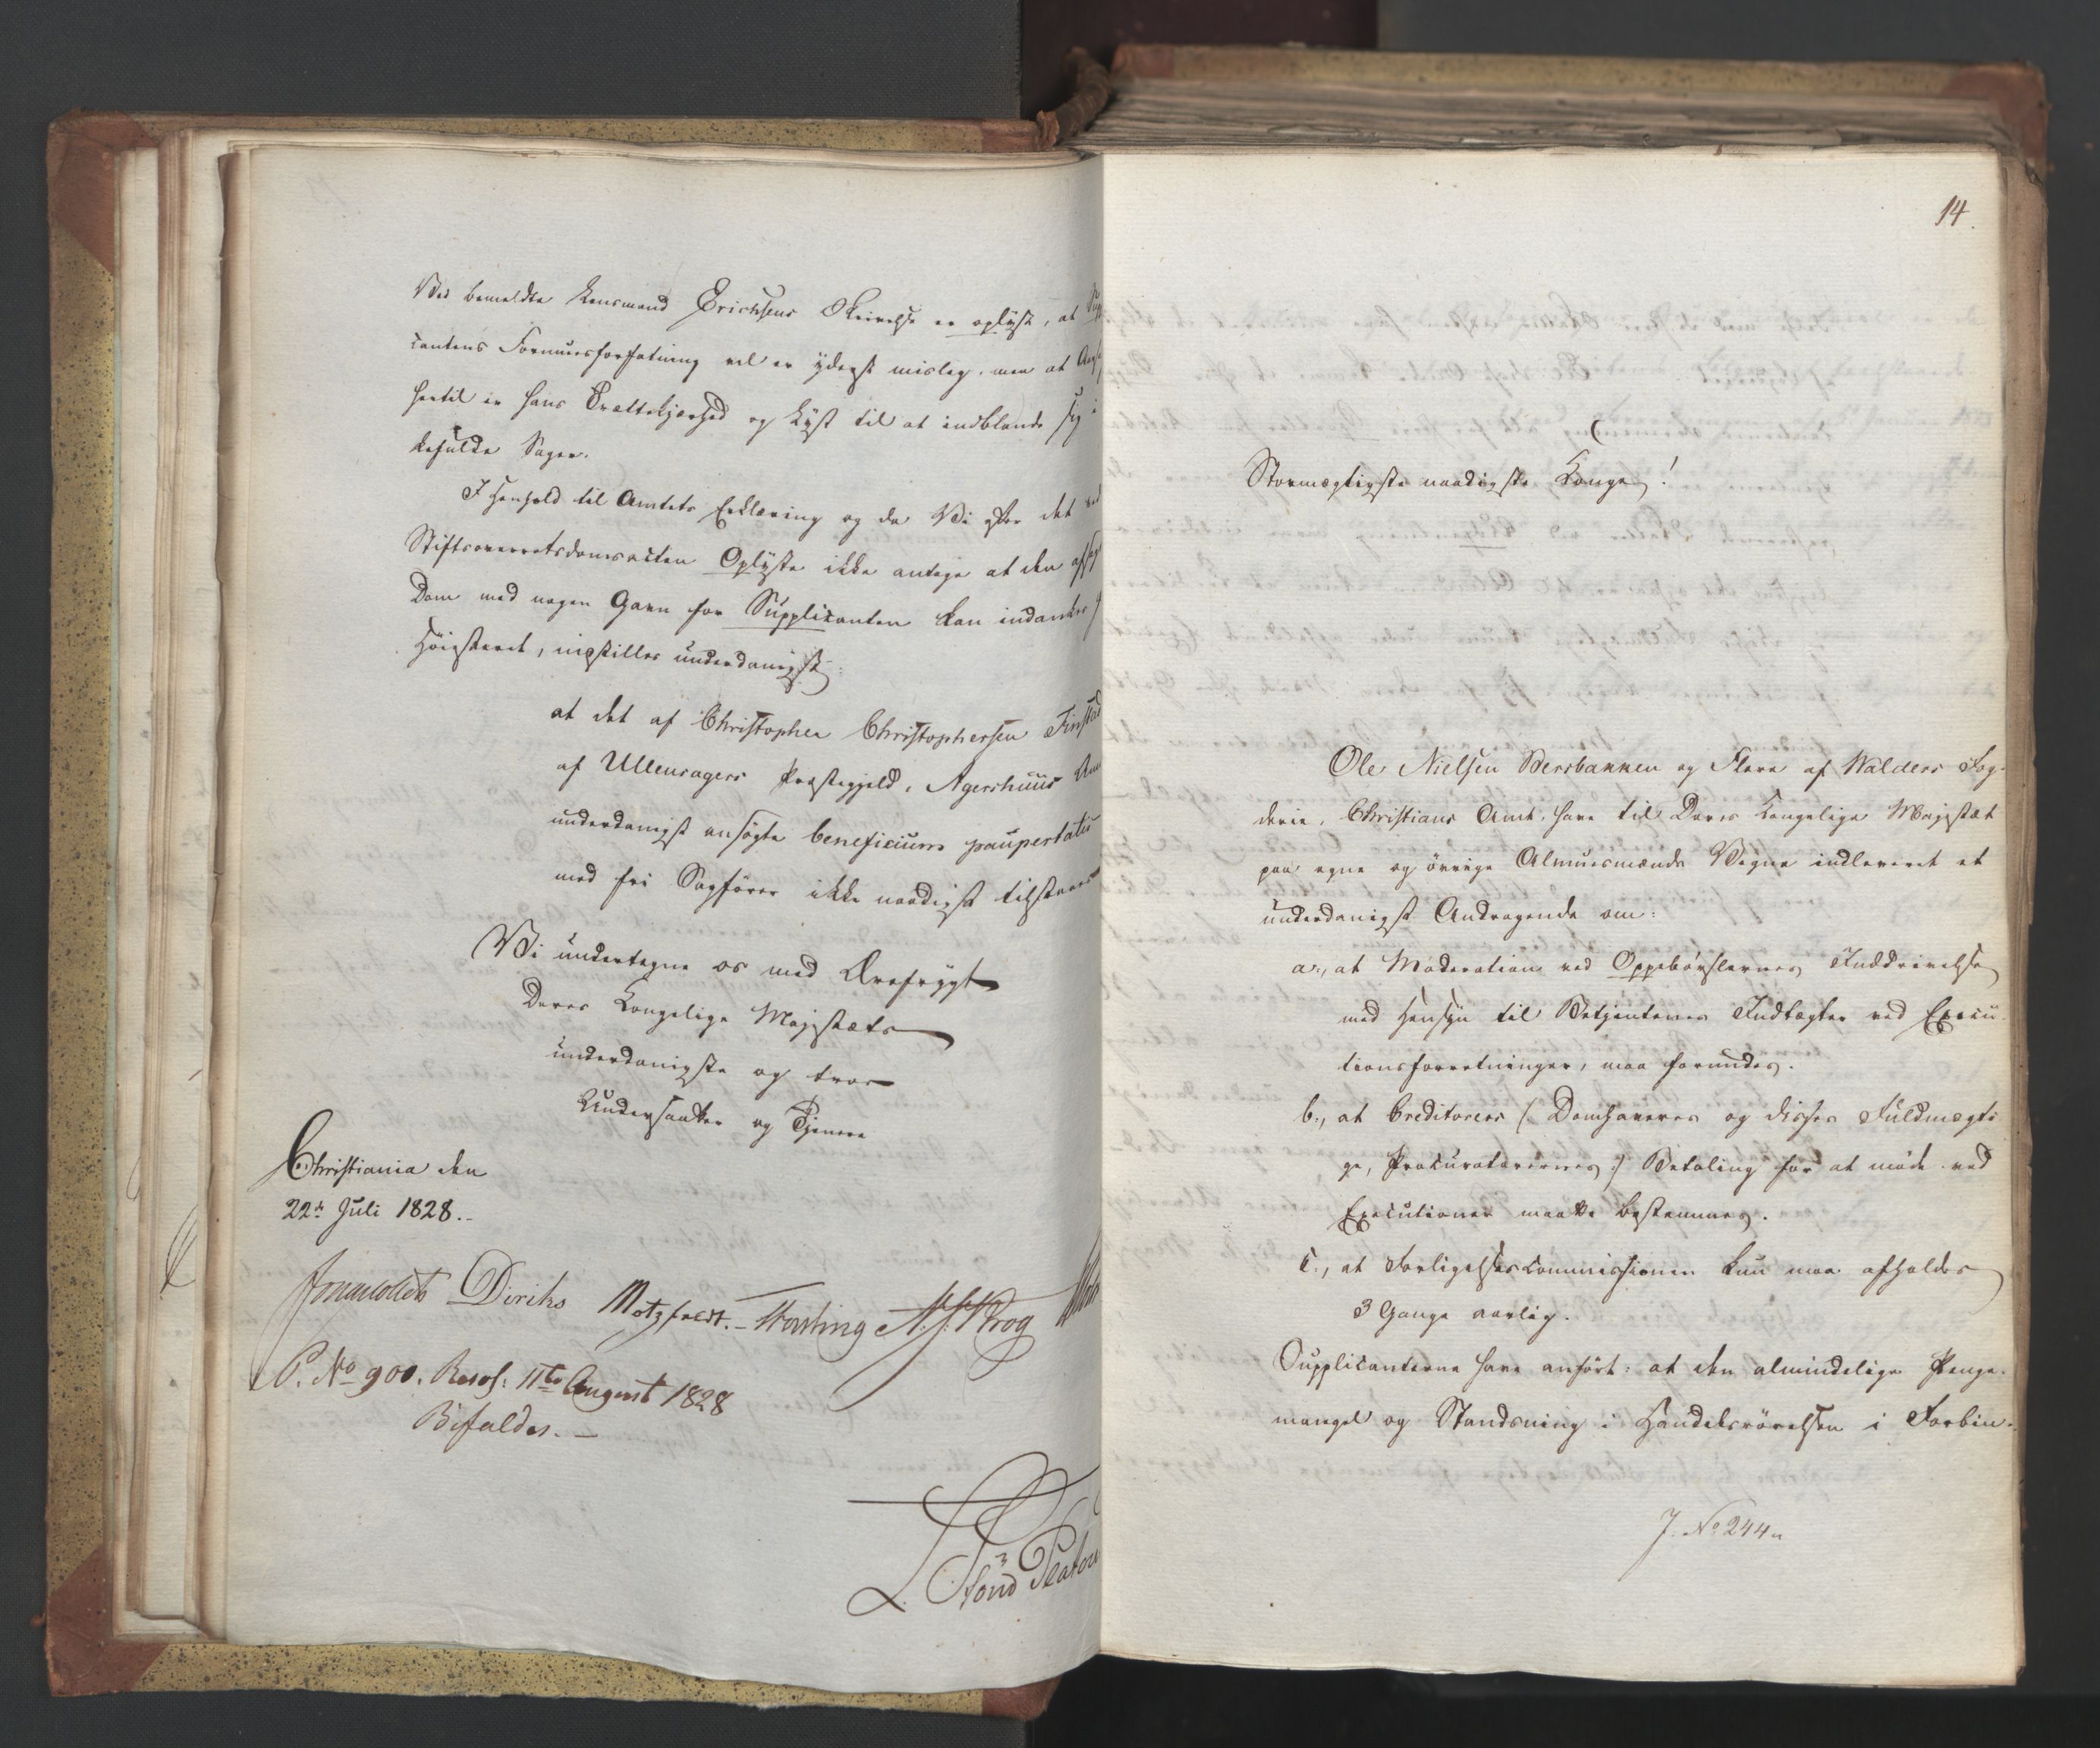 Ved bemeldte Lensmand Erichsens Skrivelse er oplyst, at
cantens Formuesforfatning vel er yderst mislig, men at
hertil er hans Trættekjærhed og Lyst til at indblande sig i
Sager.
I Henhold til Amtets Erklæring og da Vi efter det ved
Stiftsoverretsdomsacten Oplyste ikke antage at den
Dom med nogen Gavn for Supplicanten kan indankes
Høiesteret, indstilles underdanigst:
at det af Christopher Christophersen Finstad
af Ullensagers Præstegjeld, Agershuus
underdanigst ansøgte beneficium paupertatis
med fri Sagfører ikke naadigst tilstaaes
Vi undertegne os med Ærefrygt
Deres Kongelige Majestæts
underdanigste og troe
Undersaatter og Tjenere
Christiania den
22de Juli 1828.
Diriks Motzfeldt. Krog
P. No 900. Resol: 11te August 1828
Bifaldes.
14.
Stormægtigste naadigste Konge!
Ole Nielsen Bersbakken og Flere af Walders Fog-
derie, Christians Amt, have til Deres Kongelige Majestæt
paa egne og øvrige Almuesmænds Vegne indleveret et
underdanigst Andragende om:
a., at Moderation ved Oppebørslernes Inddrivelse
med Hensyn til Betjentenes Indtægter ved Execu-
tionsforretninger, maa forundes.
b., at Creditorers (: Domhaveres og disses Fuldmægti-
ge, Procuratorernes :) Betaling for at møde ved
Executioner maatte bestemmes.
c., at Forligelsescommissionen kun maa afholdes
3 Gange aarlig.
Supplicanterne have anført: at den almindelige Penge-
mangel og Standsning i Handelsrørelsen i Forbin-
J. No 244